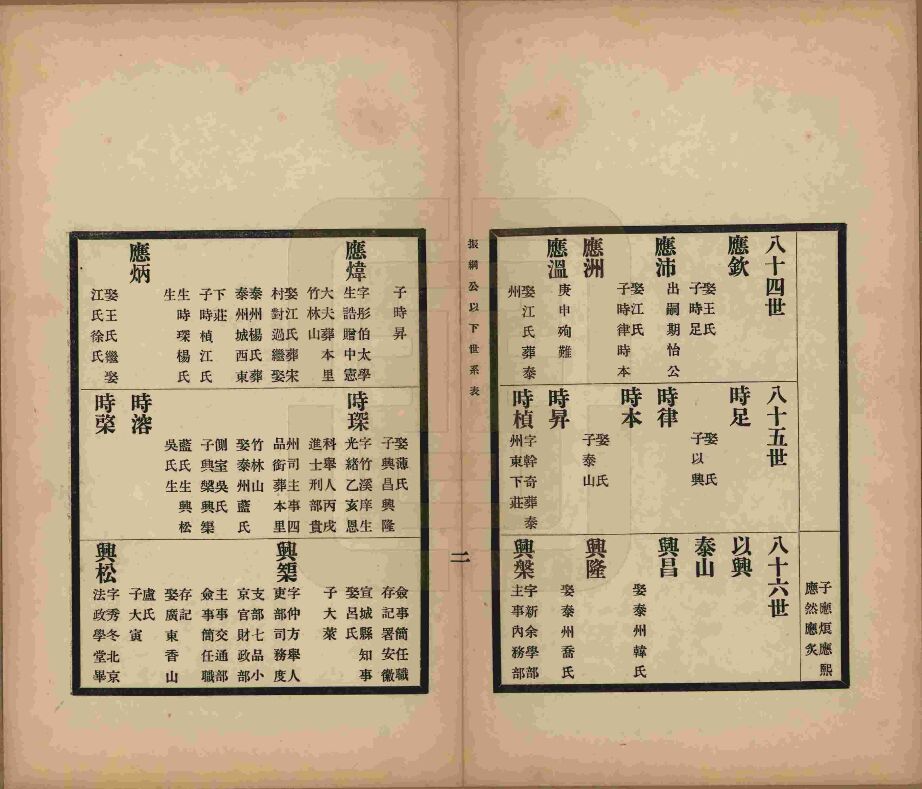 子應烜應熙
應然應炙
八十四世
應欽
娶王氏
子時足
應沛
出嗣期怡公
娶江氏
子時律時本
應洲
應溫
庚申殉難
娶江氏葬泰
州
八十五世
時足
娶 氏
子以興
時律
時本
娶 氏
子泰山
時昇
時楨
字幹奇葬泰
州東下莊
八十六世
以興
泰山
興昌
娶泰州韓氏
興隆
娶泰州喬氏
興槃
字新余學部
主事內務部
振綱公以下世系表
二
子時昇
應煒
字彤伯太學
生誥贈中憲
大夫葬本里
竹林山
娶江氏葬宋
村對過繼娶
泰州楊氏葬
泰州城西東
下莊
子時楨江氏
生時琛楊氏
生
應炳
娶王氏繼娶
江氏徐氏
娶薄氏
子興昌興隆
時琛
字竹溪庠生
光緒乙亥恩
科舉人丙戌
進士刑部貴
州司主事四
品銜葬本里
竹林山
娶泰州藍氏
側室吳氏
子興槃興榘
藍氏生興松
吳氏生
時溶
時棨
僉事簡任職
存記署安徽
宣城縣知事
娶呂氏
子大萊
興榘
字仲方舉人
吏部司務度
支部七品小
京官財政部
主事交通部
僉事簡任職
存記
娶廣東香山
盧氏
子大寅
興松
字秀冬北京
法政學堂畢